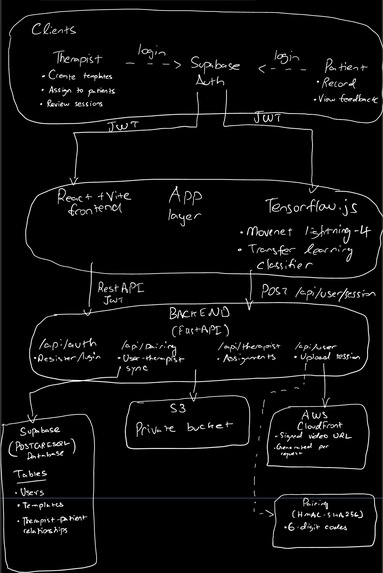 Clients
Therapist
• Create templates
• Assign to patients
• Review sessions
login
Supabase
Auth
login
Patient
• Record
• View feedback
JWT
JWT
React + Vite
frontend
App
layer
Tensorflow.js
• Movenet lightning-4
• Transfer learning
classifier
Rest API
JWT
POST /api/user/session
BACKEND
(FastAPI)
/api/auth
• Register/login
/api/pairing
• User-therapist
sync
/api/therapist
• Assignments
/api/user
• Upload session
Supabase
(POSTGRESQL)
Database
Tables
• Users
• Templates
• Therapist-patient
relationships
S3
Private bucket
AWS
CloudFront
• Signed video URL
• Generated per
request
Pairing
(HMAC-SHA256)
• 6-digit codes